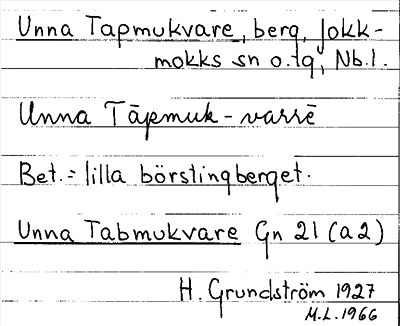 Unna Tapmukvare, berg, Jokk-
mokks sn o. tg, Nb. l.
Unna Tāpmuk-varrē
Bet. = lilla börstingberget.
Unna Tabmukvare Gn 21 (a2)
H. Grundström 1927
M.L. 1966